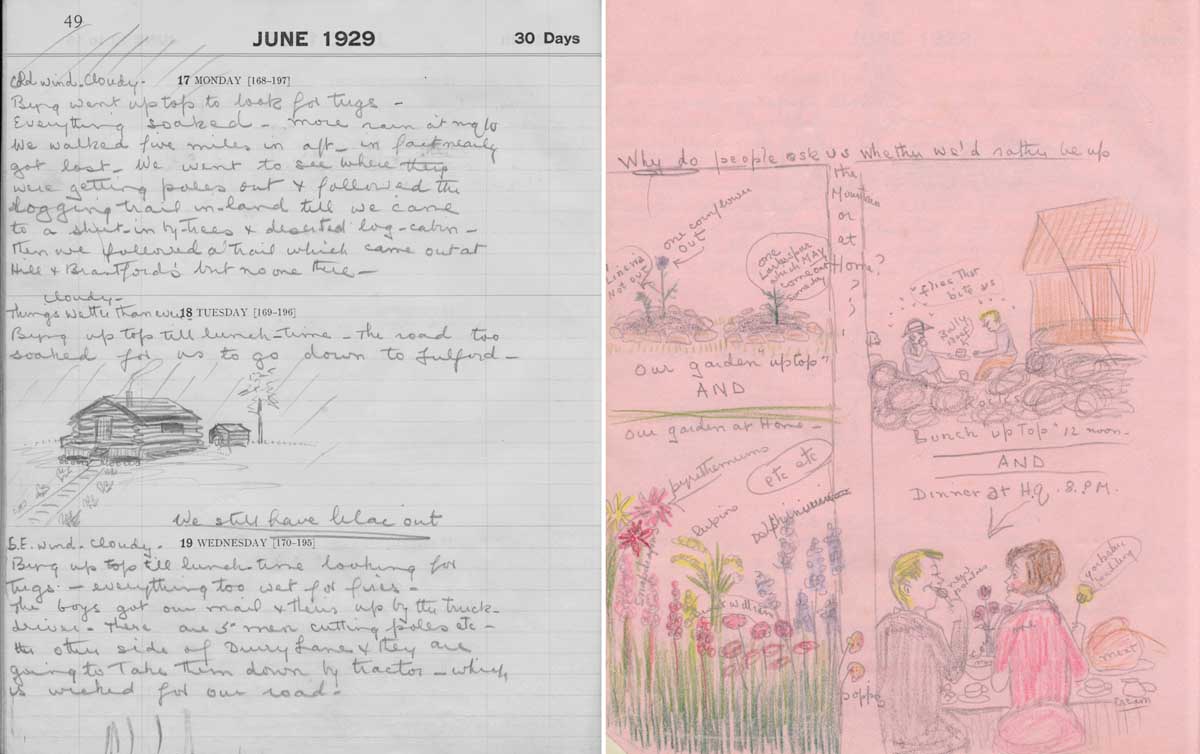 49
JUNE 1929
30 Days
Cold wind. Cloudy.
17 MONDAY [168-197]
Byng went up top to look for tugs -
Everything soaked - more rain at night
We walked five miles in aft - in fact nearly
got lost - We went to see where they
were getting poles out & followed the
logging trail in-land till we came
to a shut-in by-trees & deserted log-cabin -
then we followed a trail which came out at
Hill & Brantford's but no one there -
Cloudy -
Things wetter than ever
18 TUESDAY [169-196]
Byng up top till lunch-time - The road too
soaked for us to go down to Fulford -
We still have lilac out
S.E. wind. Cloudy.
19 WEDNESDAY [170-195]
Byng up top till lunch-time looking for
tugs: - everything too wet for fires -
The boys got our mail & theirs up by the truck-
driver - There are 5 men cutting poles etc -
the other side of Drury Lane & they are
going to take them down by tractor - which
is wicked for our road -
Why do people ask us whether we'd rather be up
the
Mountain
or
at
Home?
? ? ?
one cornflower
out
Linaria
Not out
one
Larkspur
which MAY
come out
someday
Our garden "up top"
AND
Our garden at Home -
pyrethemums
etc etc
Lupins
Delphiniums
Sweet William
poppy
flies that
bite us
Bunch up Top "12 noon -
AND
Dinner at H.Q. 8. P.M.
new
potatoes
yorkshire
pudding
meat
cream